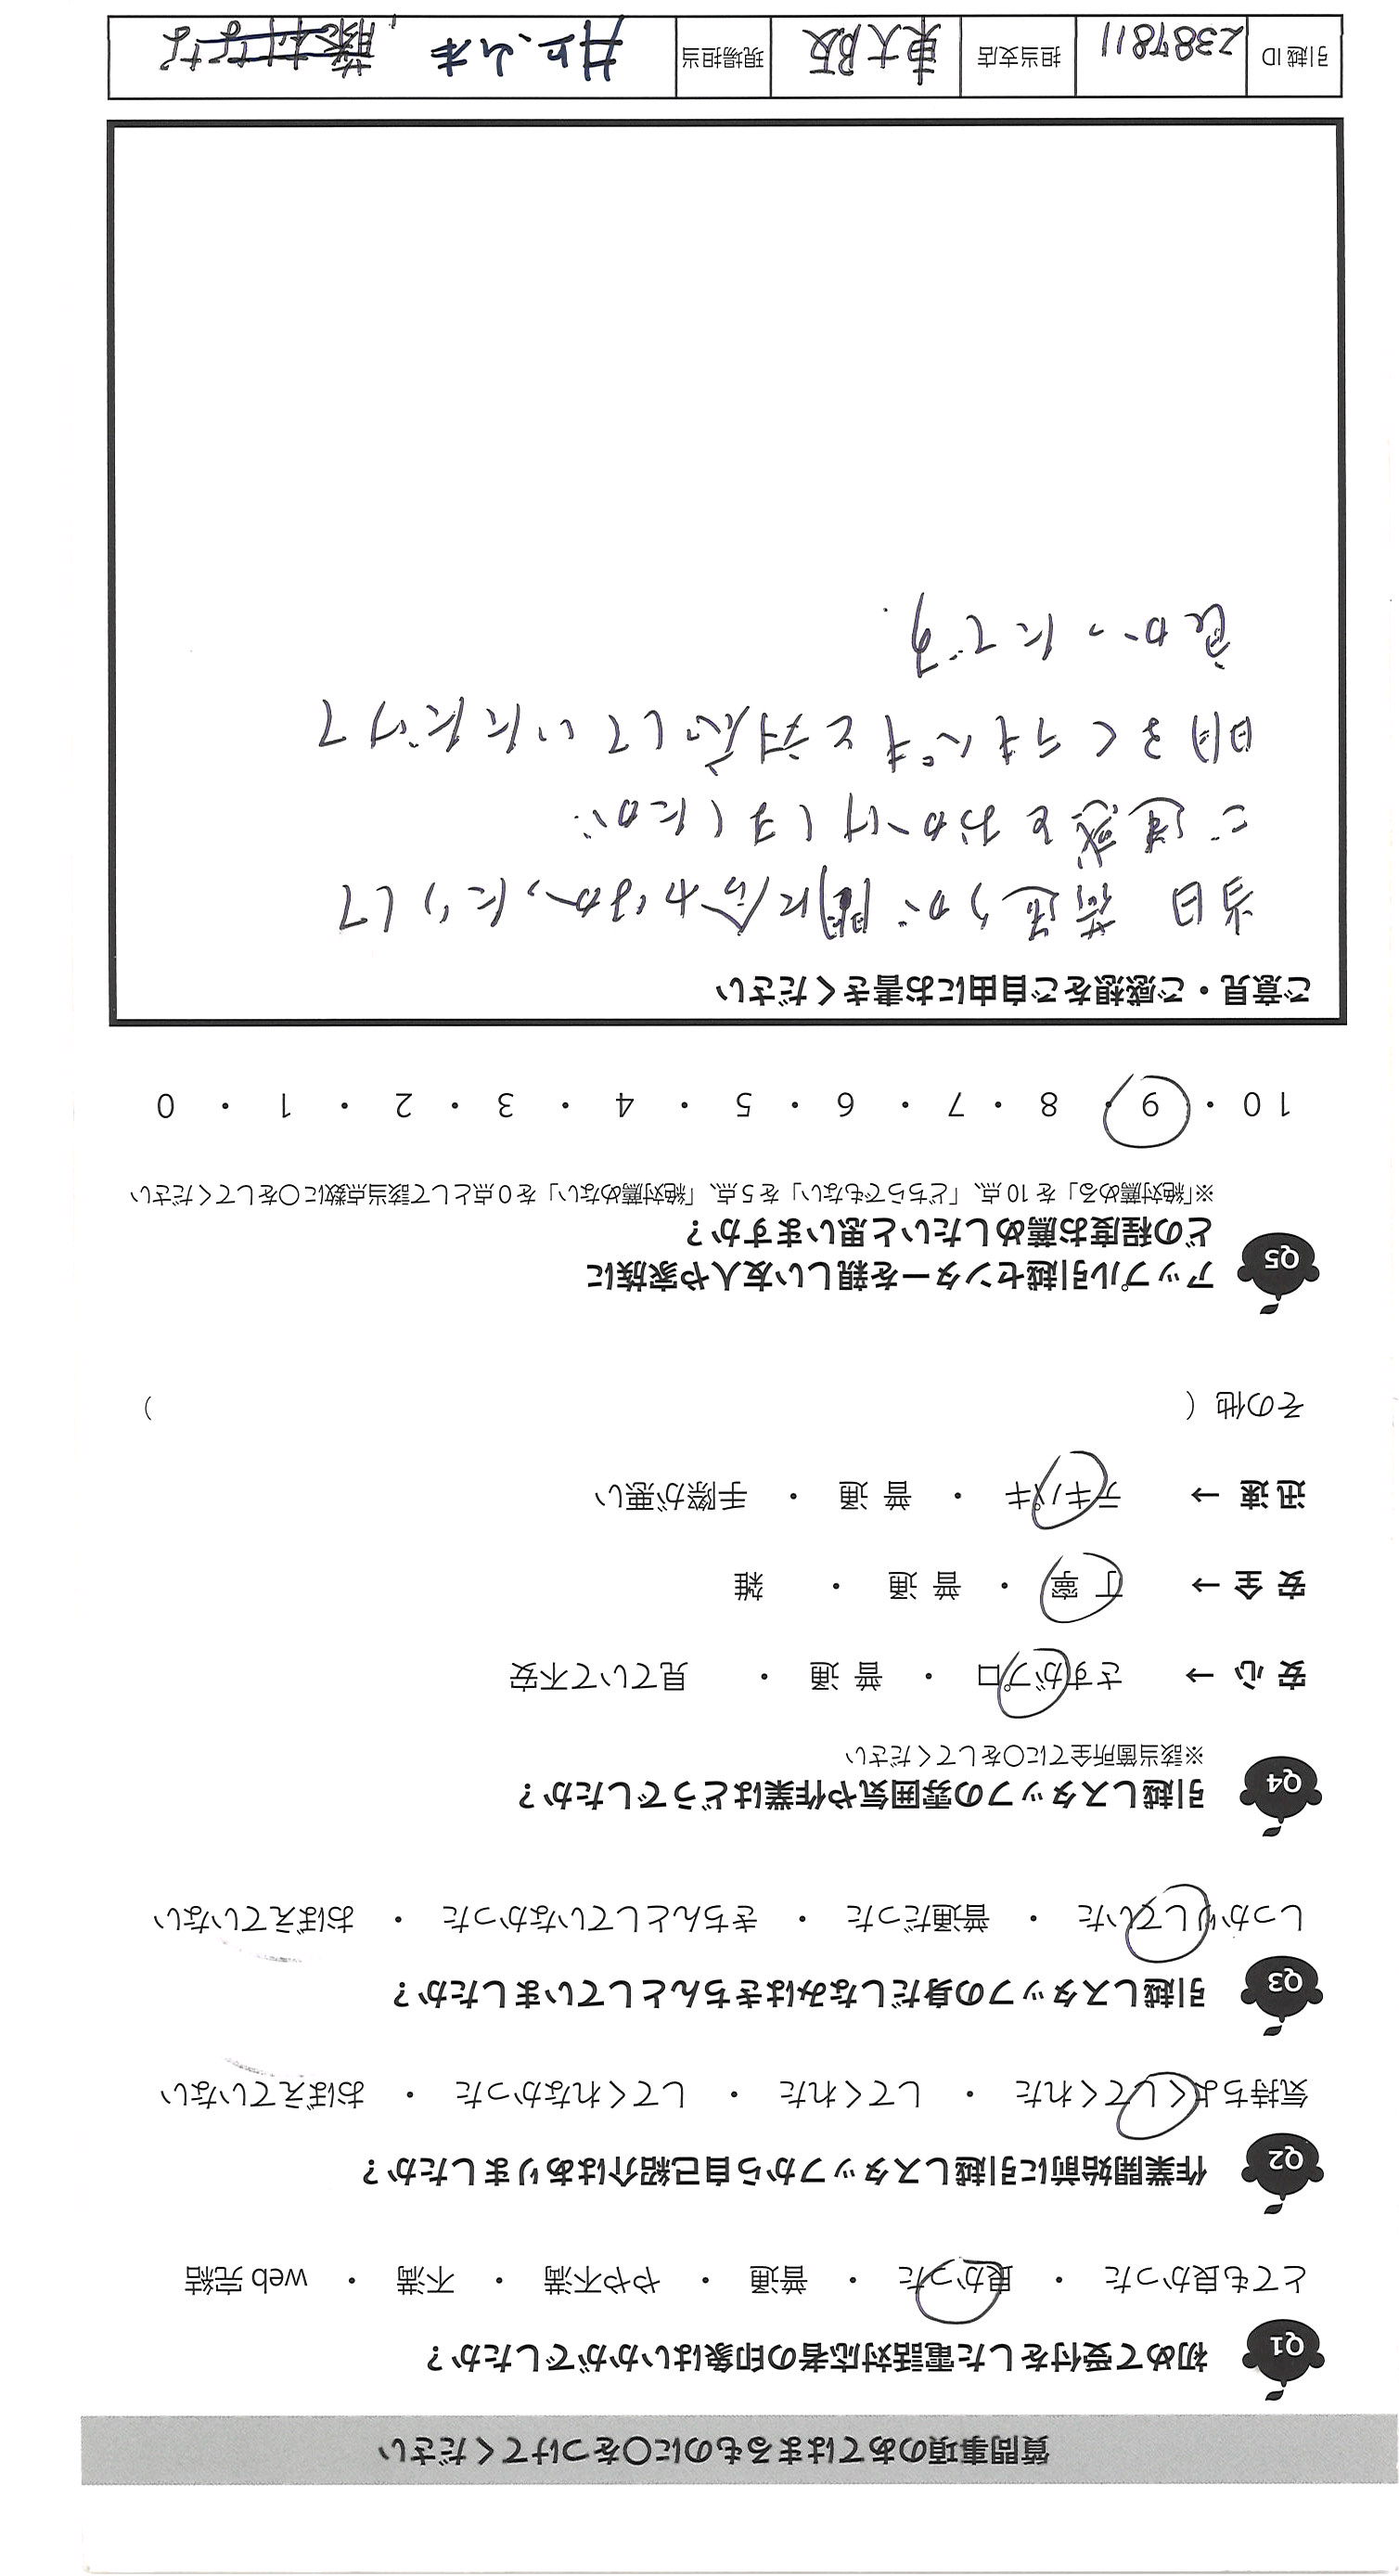 質問事項のあてはまるものに〇をつけてください
Q1 初めて受付をした電話対応者の印象はいかがでしたか？
とても良かった ・ 良かった ・ 普通 ・ やや不満 ・ 不満 ・ web 完結
Q2 作業開始前に引越しスタッフから自己紹介はありましたか？
気持ちよくしてくれた ・ してくれた ・ してくれなかった ・ おぼえていない
Q3 引越しスタッフの身だしなみはきちんとしていましたか？
しっかりしていた ・ 普通だった ・ きちんとしていなかった ・ おぼえていない
Q4 引越しスタッフの雰囲気や作業はどうでしたか？
※該当箇所全てに〇をしてください
安心 → さすがプロ ・ 普通 ・ 見ていて不安
安全 → 丁寧 ・ 普通 ・ 雑
迅速 → テキパキ ・ 普通 ・ 手際が悪い
その他（ ）
Q5 アップル引越センターを親しい友人や家族に
どの程度お薦めしたいと思いますか？
※「絶対薦める」を10点、「どちらでもない」を5点、「絶対薦めない」を0点として該当点数に〇をしてください
10 ・ 9 ・ 8 ・ 7 ・ 6 ・ 5 ・ 4 ・ 3 ・ 2 ・ 1 ・ 0
ご意見・ご感想をご自由にお書きください
当日 荷造りが間に合わなかったりして
ご迷惑をおかけしましたが
明るくテキパキと対応していただけて
良かったです.
引越ID 2387811 担当支店 東大阪 現場担当 井上、山本